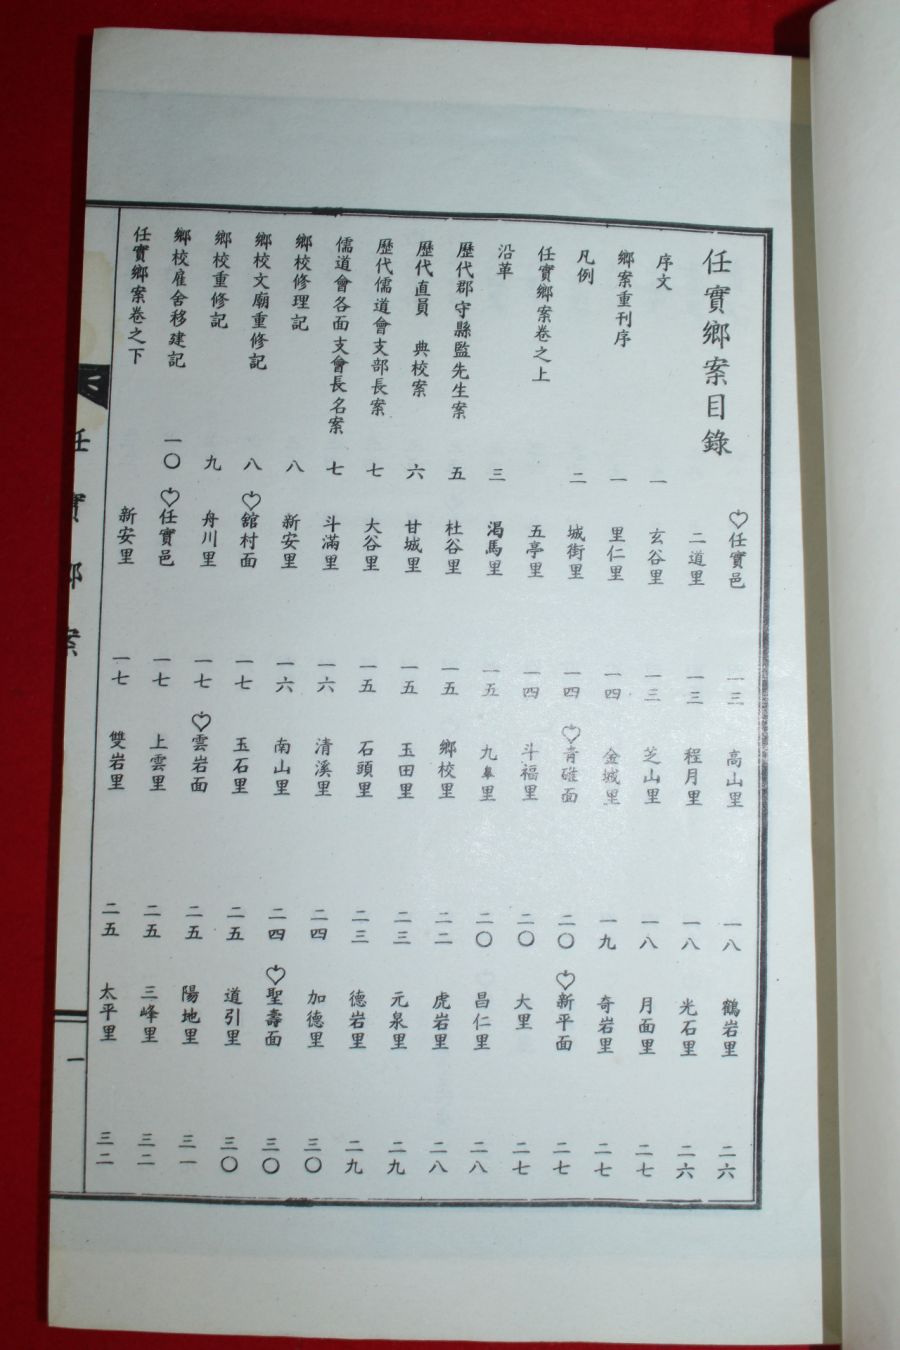 任實鄉案目錄
序文 一
鄉案重刊序 一
凡例 二
任實鄉案卷之上
沿革 三
歷代郡守縣監先生案 五
歷代直員 典校案 六
歷代儒道會支部長案 七
儒道會各面支會長名案 七
鄉校修理記 八
鄉校文廟重修記 八
鄉校重修記 九
鄉校雇舍移建記 一〇
任實鄉案卷之下
任實邑 一三
二道里 一三
玄谷里 一三
里仁里 一四
城街里 一四
五亭里 一四
渴馬里 一五
杜谷里 一五
甘城里 一五
大谷里 一五
斗滿里 一六
新安里 一六
舘村面 一七
舟川里 一七
任實邑 一七
新安里 一七
高山里 一八
程月里 一八
芝山里 一八
金城里 一九
青 面 二〇
斗福里 二〇
九皐里 二〇
鄉校里 二二
玉田里 二三
石頭里 二三
清溪里 二四
南山里 二四
玉石里 二五
雲岩面 二五
上雲里 二五
雙岩里 二五
鶴岩里 二六
光石里 二六
月面里 二七
奇岩里 二七
新平面 二七
大里 二七
昌仁里 二八
虎岩里 二八
元泉里 二九
德岩里 二九
加德里 三〇
聖壽面 三〇
道引里 三〇
陽地里 三一
三峰里 三二
太平里 三二
任實鄉案
一